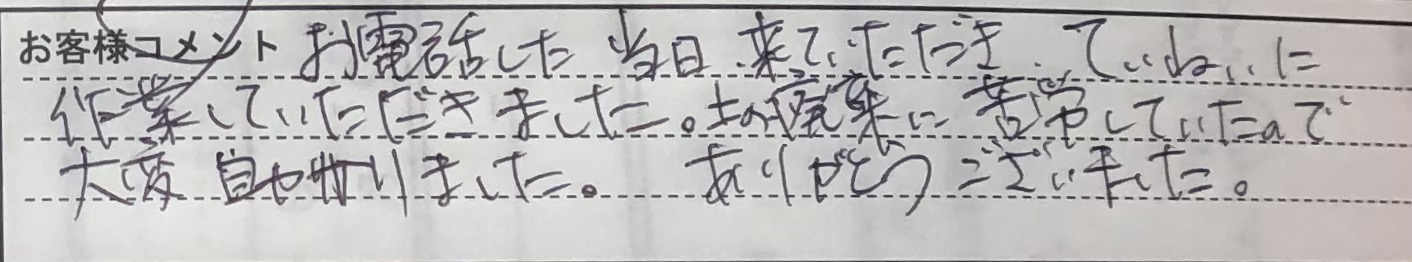 お客様コメント お電話した当日、来ていただき、ていねいに
作業していただきました。土の廃棄に苦労していたので
大変助かりました。 ありがとうございました。